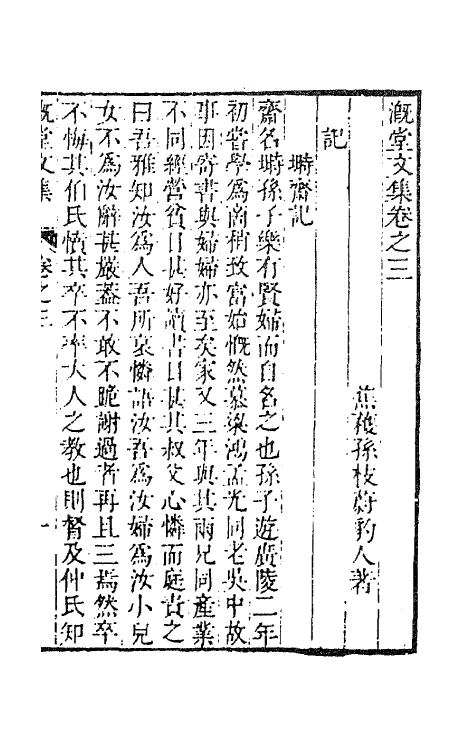 溉堂文集卷之三
焦穫孫枝蔚豹人著
記
塒齋記
齋名塒孫子樂有賢婦而自名之也孫子遊廣陵二年
初嘗學為商稍致富始慨然慕梁鴻孟光同老吳中故
事因寄書與婦婦亦至矣家又三年與其兩兄同產業
不同經營貧日甚好讀書日甚其叔父心憐而庭責之
曰吾雅知汝為人吾所哀憐語汝吾為汝婦為汝小兒
女不為汝辭甚嚴蓋不敢不跪謝過者再且三焉然卒
不悔其伯氏憤其卒不率大人之教也則督及仲氏知
溉堂文集 卷之三 一